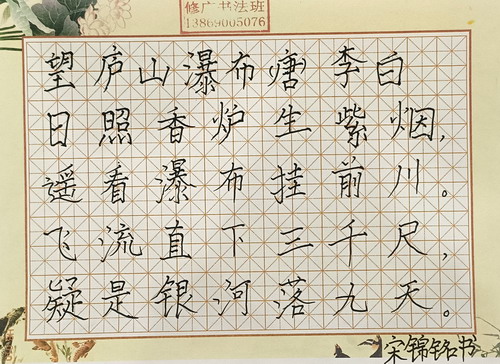 修广书法班
13869005076
望庐山瀑布(唐)李白
日照香炉生紫烟,
遥看瀑布挂前川。
飞流直下三千尺,
疑是银河落九天。
宋锦铭书